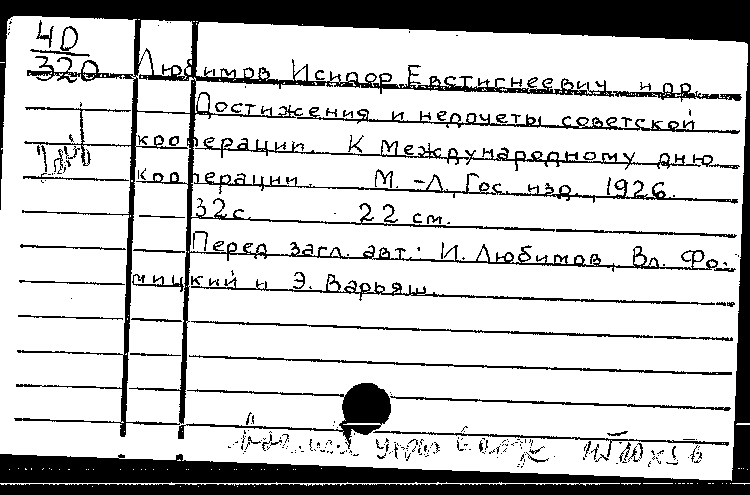 40
320
Любимов, Исидор Евстигнеевич и др.
Достижения и недочеты советской
кооперации. К Международному дню
кооперации. М.-Л., Гос. изд., 1926.
32 с. 22 см.
Перед загл. авт.: И. Любимов, Вл. Фо-
мицкий и Э. Варьяш.